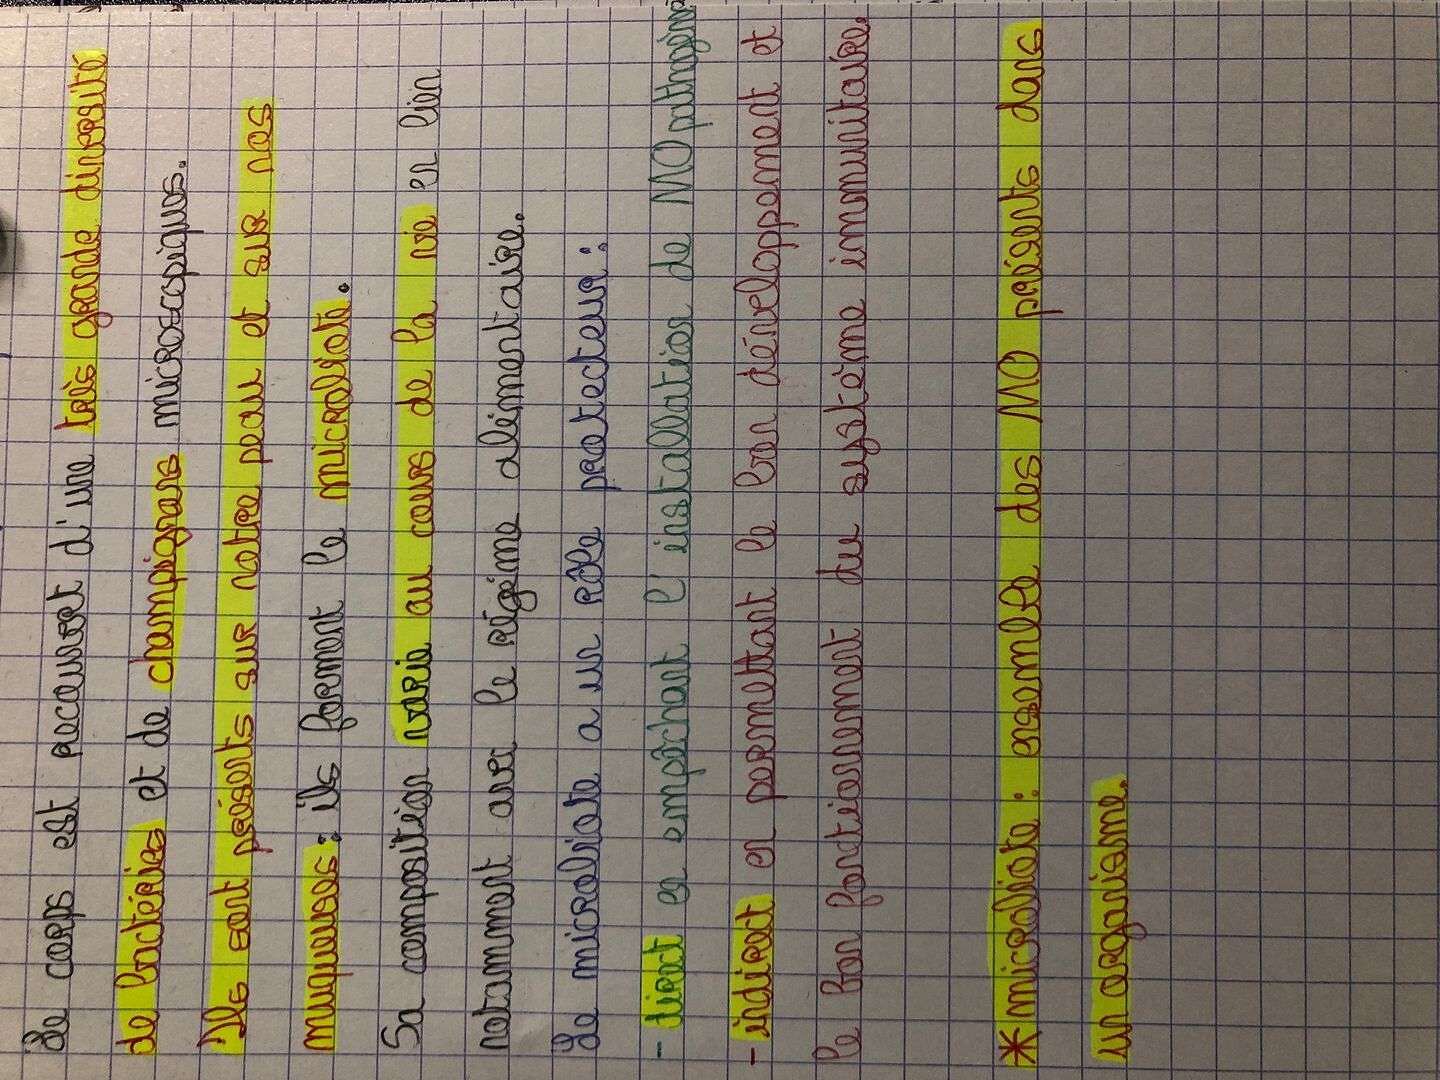 Le corps est recouvert d'une très grande diversité
de bactéries et de champignons microscopiques.
Ils sont présents sur notre peau et sur nos
muqueuses : ils forment le microbiote.
Sa composition varie au cours de la vie en lien
notamment avec le régime alimentaire.
Le microbiote a un rôle protecteur :
- direct en empêchant l'installation de MO pathogènes
- indirect en permettant le bon développement et
le bon fonctionnement du système immunitaire.
* microbiote : ensemble des MO présents dans
un organisme.